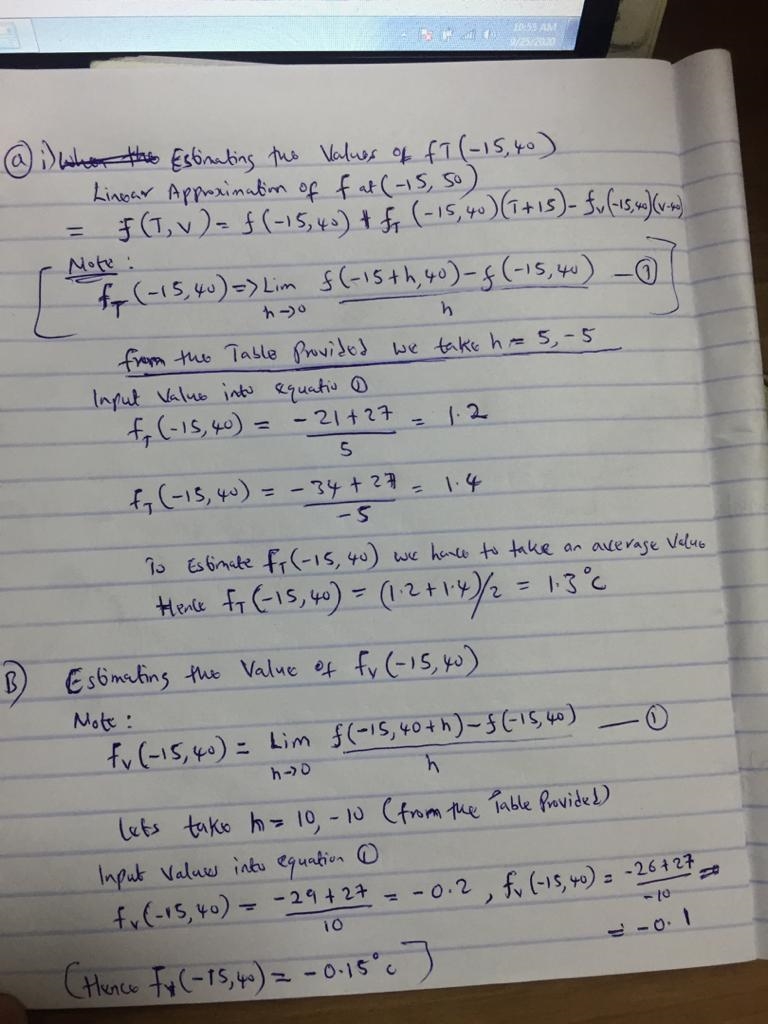 10:55 AM
9/25/2020
(a) i) When the Estimating the Values of fT(-15,40)
Linear Approximation of f at (-15, 50)
= f(T,V) = f(-15,40) + f_T (-15,40)(T+15) - f_v(-15,40)(v-40)
Note :
f_T(-15,40) => Lim h→0 f(-15+h,40) - f(-15,40) / h — (1)
from the Table Provided we take h = 5, -5
Input Value into equatio (1)
f_T(-15,40) = -21+27 / 5 = 1.2
f_T(-15,40) = -34+27 / -5 = 1.4
To Estimate f_T(-15,40) we have to take an average Value
Hence f_T(-15,40) = (1.2+1.4)/2 = 1.3°C
B) Estimating the Value of f_v(-15,40)
Note :
f_v(-15,40) = Lim h→0 f(-15,40+h) - f(-15,40) / h — (1)
lets take h = 10, -10 (from the Table Provided)
Input Values into equation (1)
f_v(-15,40) = -29+27 / 10 = -0.2 , f_v(-15,40) = -26+27 / -10 =
= -0.1
(Hence f_v(-15,40) = -0.15°c]